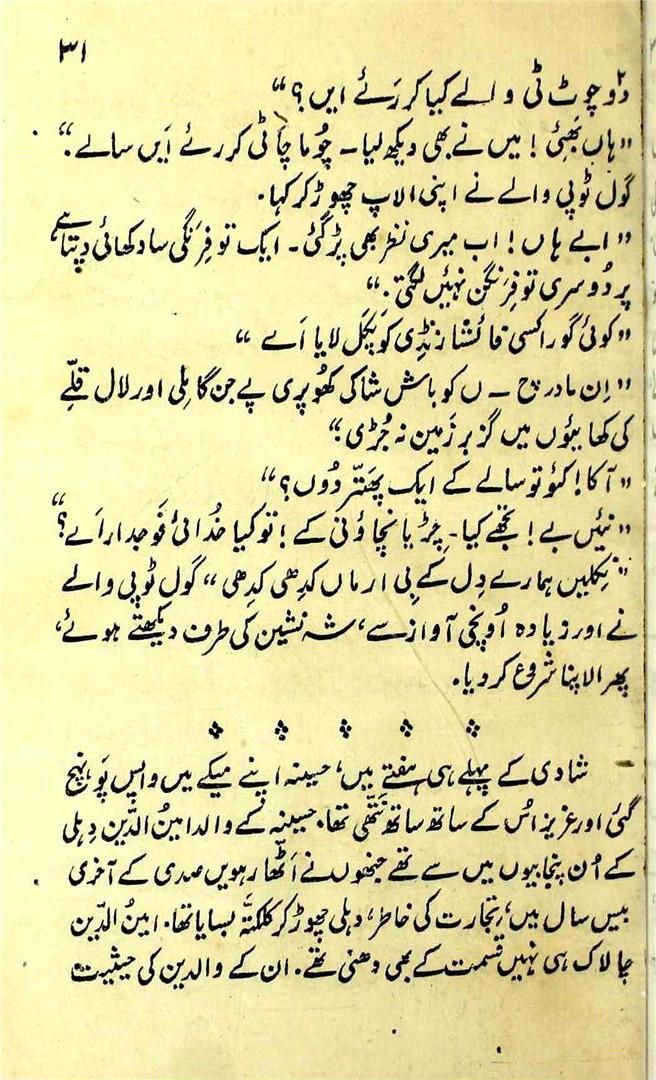 ۳۱
دو چوٹ ٹی والے کیا کر رَئے ایں؟“
”ہاں بَھئی! میں نے بھی دیکھ لیا۔ چُوما چاٹی کر رئے اَیں سالے.“
گول ٹوپی والے نے اپنی الاپ چھوڑ کر کہا.
”ابے ہاں! اب میری نظر بھی پڑ گئی۔ ایک تو فِرَنگی سا دکھائی دِتا ہے
پر دُوسری تو فِرَنگن نہئیں لگتی.“
”کوئی گورا کسی فائشا رنڈی کو پکَل لایا اَے“
”اِن مادر چ ۔ ں کو باش شا کی کھُوپری پے جن گا مِلی اور لال قلّے
کی کھائیوُں میں گز بر زَمین نہ جُڑی؟“
”آکا! کئو تو سالے کے ایک پھتّر دُوں؟“
”نَیئں بے! تجھے کیا۔ چِڑیا نچاؤنی کے! تو کیا خُدائی فَوجدار اَے؟“
”نِکلیں ہمارے دِل کے پی ارماں کدھی کدِھی“ گول ٹوپی والے
نے اور زیادہ اُونچی آواز سے، شہ نشین کی طرف دیکھتے ہوئے،
پھر الاپنا شروع کر دیا.
شادی کے پہلے ہی ہفتے میں، حسینہ اپنے میکے میں واپس پَوہنچ
گئی اور عزیز اُس کے ساتھ ساتھ نَتّھی تھا. حسینہ کے والد امینُ الدّین دِہلی
کے اُن پنجابیوں میں سے تھے جنھوں نے اَٹّھارہویں صدی کے آخری
بیس سال میں، تِجارت کی خاطر، دہلی چھوڑ کر کلکتّہ بسایا تھا. امینُ الدّین
چالاک ہی نہیں قسمت کے بھی دھنی تھے. ان کے والدین کی حیثیت